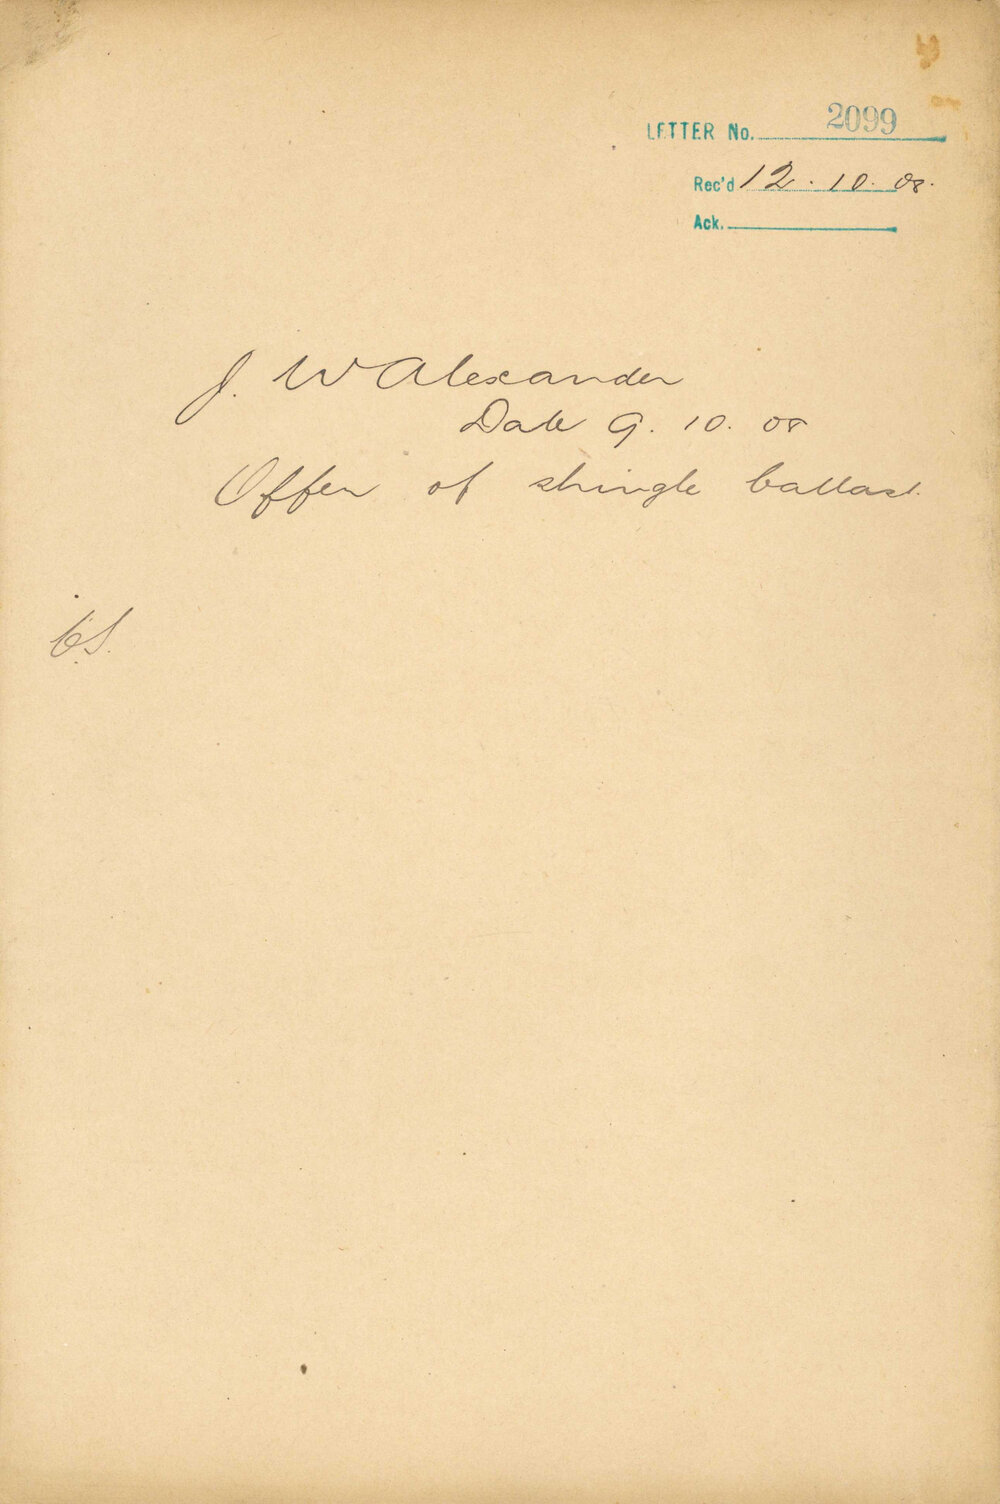 LETTER No. 2099
Rec'd 12. 10. 08.
Ack.
J. W Alexander
Date 9. 10. 08
Offer of shingle ballast.